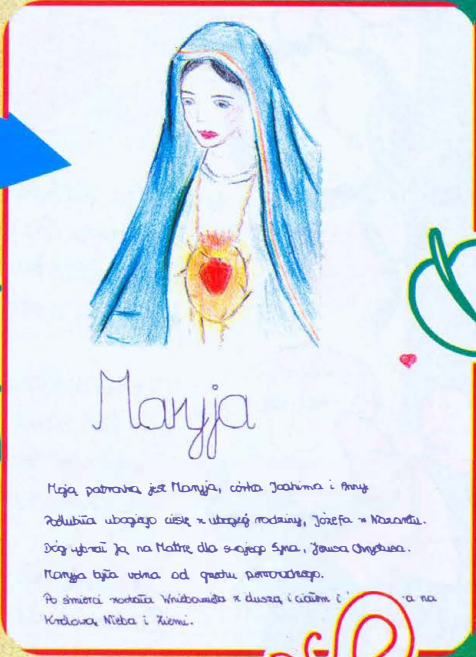 Maryja
Moją patronką jest Maryja, córka Joahima i Anny
Poślubiła ubogiego cieślę z ubogiej rodziny, Józefa z Nazaretu.
Bóg wybrał Ją na Matkę dla swojego Syna, Jezusa Chrystusa.
Maryja była wolna od grzechu pierworodnego.
Po śmierci została Wniebowzięta z duszą i ciałem i na
Królową Nieba i Ziemi.